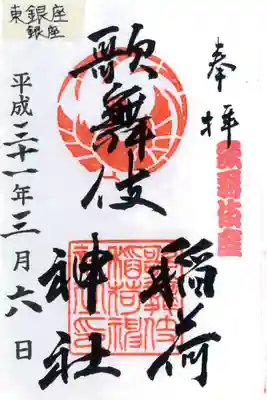 東銀座
銀座
奉拝
歌舞伎座
歌舞伎
稲荷
神社
平成三十一年三月六日